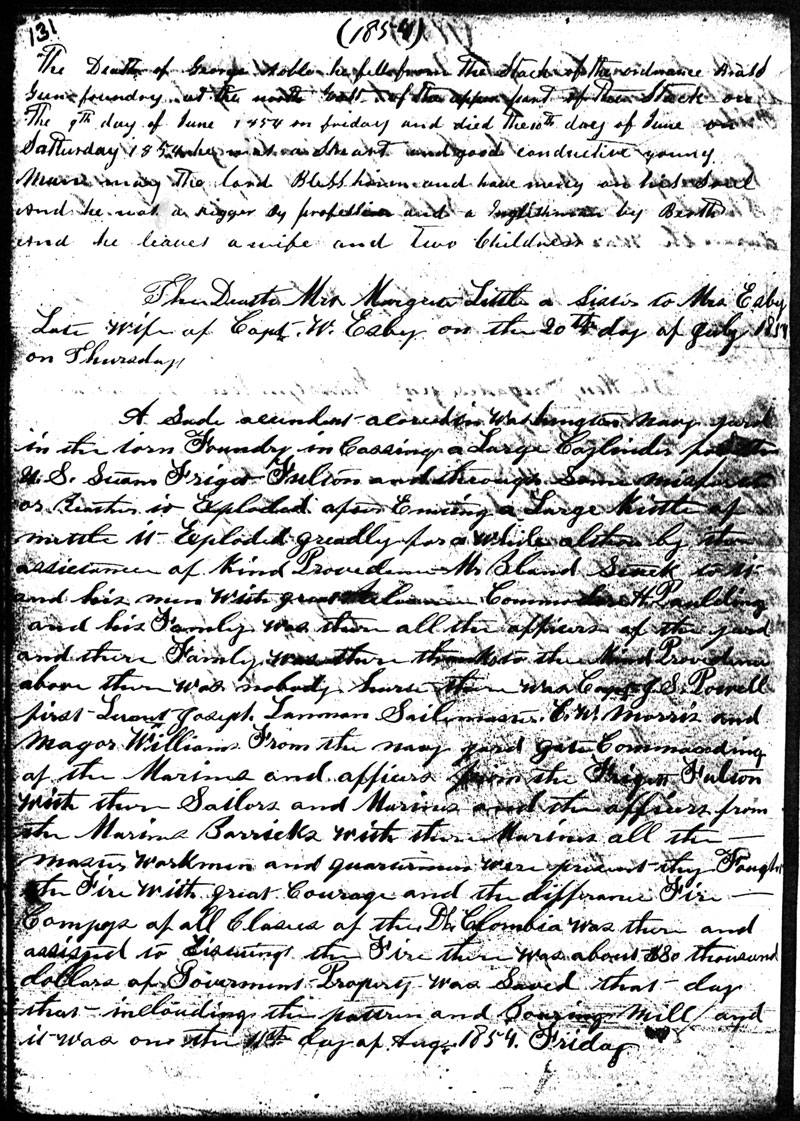 131 (1854)
The Death of George Noble he fell from The Stack of the ordnance Brass
Gun foundry at the north East of the upper part of the Stack on
The 9th day of June 1854 on friday and died the 10th day of June on
Satturday 1854 he was a and good conductive young
Man may the land Bless him and have mercy on his Soul
And he was a rigger by profession and a Inglishman by Birth
And he leaves a wife and Two Children
The Death Mrs Margrett Little a Sister to Mrs Esby
Late wife of Capt. W. Esby on the 20th day of July 1854
on Thursday
A Sade accident acored in Washington navy yard
in the iorn Foundry in Cassing a Large Caylinder for the
U. S. Steam Frigat Fulton and through Some
or it Exploded after a Large Kittle of
mettle it Exploded greadly for a while by the
assistance of Kind Providence Mr Bland Stuck to it
and his men with great Commodore H. Paulding
and his Famly was there all the officers of the yard
and there Famly was there thanks to the kind Providence
above there was nobody hurte there was Capt J. S. Powell
first Luent Joseph Lanman Sailmaster C. W. Morris and
Magor Williams From the navy yard gate Commanding
of the Marines and officers from the Frigat Fulton
with there Sailors and Marines and the officers from
the Marines Barricks with there Marines all the
master workmen and quartermen were present they Fought
the Fire with great Courage and the differance Fire
Companys of all Clases of the Dt Clombia was there and
assisted to the Fire there was about 80 thousand
dollars of Goverment Property was Saved that day
that inclouding the pattern and Bouring Mill and
it was one the 11th day of Aug. 1854. Friday